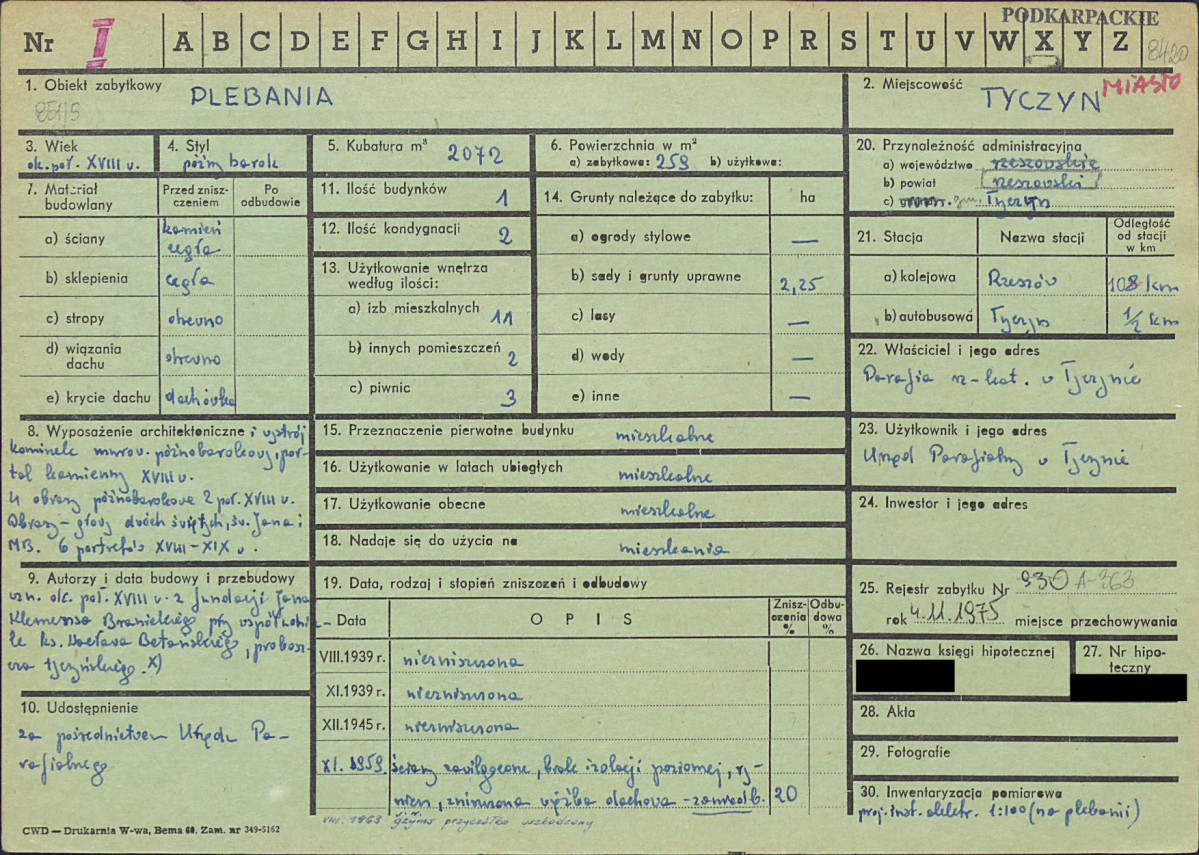 PODKARPACKIE
Nr I A B C D E F G H I J K L M N O P R S T U V W X Y Z
8420
1. Obiekt zabytkowy
PLEBANIA
851/5
2. Miejscowość
TYCZYN MIASTO
3. Wiek
ok. poł. XVIII w.
4. Styl
późny barok
5. Kubatura m³ 2072
6. Powierzchnia w m²
a) zabytkowa: 259 b) użytkowa:
7. Materiał budowlany
Przed zniszczeniem
Po odbudowie
a) ściany kamień cegła
b) sklepienia cegła
c) stropy drewno
d) wiązania dachu drewno
e) krycie dachu dachówka
8. Wyposażenie architektoniczne i wystrój
kominek murow. późnobarokowy, por-
tal kamienny XVIII w.
4 obrazy późnobarokowe 2 poł. XVIII w.
Obrazy - głowy dwóch świętych, św. Jana i
MB. 6 portretów XVIII-XIX w.
9. Autorzy i data budowy i przebudowy
wzn. ok. poł. XVIII w. z fundacji Jana
Klemensa Branickiego przy współudzia-
le ks. Wacława Betańskiego, probosz-
cza tyczyńskiego. X)
10. Udostępnienie
za pośrednictwem Urzędu Pa-
rafialnego
11. Ilość budynków 1
12. Ilość kondygnacji 2
13. Użytkowanie wnętrza
według ilości:
a) izb mieszkalnych 11
b) innych pomieszczeń 2
c) piwnic 3
14. Grunty należące do zabytku: ha
a) ogrody stylowe —
b) sady i grunty uprawne 2,25
c) lasy —
d) wody —
e) inne —
15. Przeznaczenie pierwotne budynku mieszkalne
16. Użytkowanie w latach ubiegłych mieszkalne
17. Użytkowanie obecne mieszkalne
18. Nadaje się do użycia na mieszkania
19. Data, rodzaj i stopień zniszczeń i odbudowy
Data O P I S Zniszczenia % Odbudowa %
VIII.1939 r. niezniszczona
XI.1939 r. niezniszczona
XII.1945 r. niezniszczona
XI. 1959 ściany zawilgocone, brak izolacji poziomej, ry-
nien, zniszczona więźba dachowa - zaniedb. 20
VIII. 1963 gzyms przyczółka uszkodzony
20. Przynależność administracyjna
a) województwo rzeszowskie
b) powiat rzeszowski
c) gm. Tyczyn
21. Stacja Nazwa stacji Odległość od stacji w km
a) kolejowa Rzeszów 10 km
b) autobusowa Tyczyn 1/2 km
22. Właściciel i jego adres
Parafia rz-kat. w Tyczynie
23. Użytkownik i jego adres
Urząd Parafialny w Tyczynie
24. Inwestor i jego adres
25. Rejestr zabytku Nr 930 A-363
rok 4.11.1975 miejsce przechowywania
26. Nazwa księgi hipotecznej
27. Nr hipoteczny
28. Akta
29. Fotografie
30. Inwentaryzacja pomiarowa
proj. inst. elektr. 1:100 (na plebanii)
CWD — Drukarnia W-wa, Bema 60. Zam. nr 349-5162